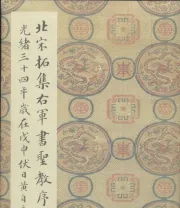 北宋拓集右軍書聖教序
光緒三十四年歲在戊申伏日黃自